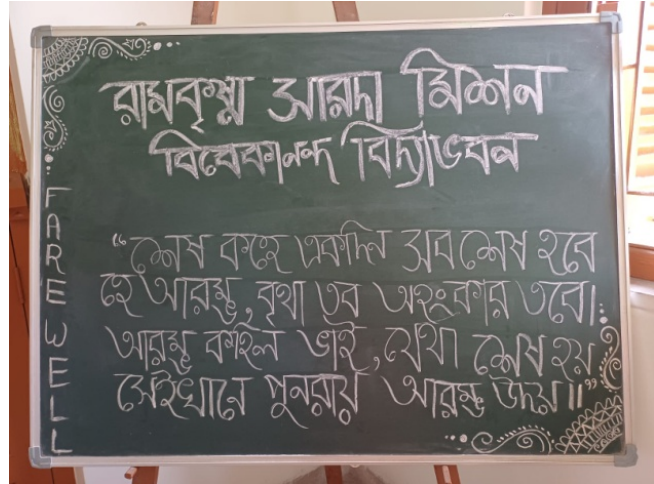 রামকৃষ্ণ সারদা মিশন
বিবেকানন্দ বিদ্যাভবন
FAREWELL
“শেষ কহে একদিন সব শেষ হবে
হে আরম্ভ, বৃথা তব অহংকার তবে।
আরম্ভ কহিল ভাই, যেথা শেষ হয়
সেইখানে পুনরায় আরম্ভ উদয়॥”